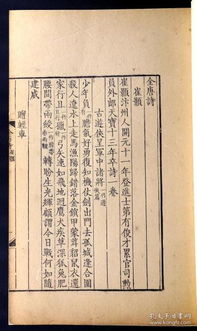 全唐詩
崔顥
崔顥汴州人開元十一年登進士第有俊才累官司勳
員外郎天寶十三年卒詩一卷
古遊俠呈軍中諸將
少年負膽氣好勇復知機仗劍出門去孤城逢合圍
殺人遼水上走馬漁陽歸錯落金鎖甲蒙茸貂鼠衣還
家行且獵弓矢速如飛地迥鷹犬疾草深狐兔肥
腰間帶兩綬轉盼生光輝顧謂今日戰何如隨
建威
贈輕車